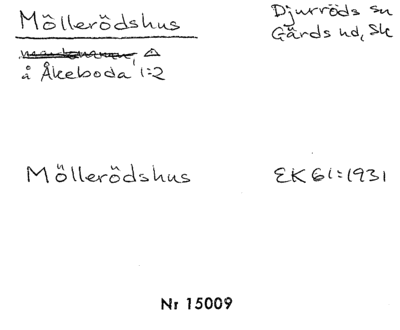 Möllerödshus
Djurröds sn
Gärds hd, Sk
å Åkeboda 1:2
Möllerödshus
EK 61:1931
Nr 15009